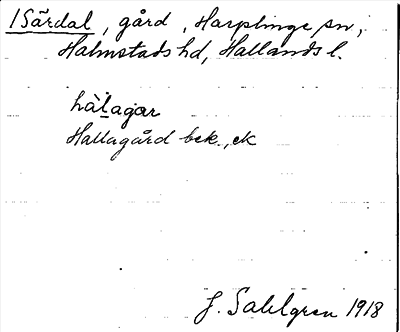 1 Särdal, gård, Harplinge sn,
Halmstads hd, Hallands l.
Hallagård bek., ek
J. Sahlgren 1918